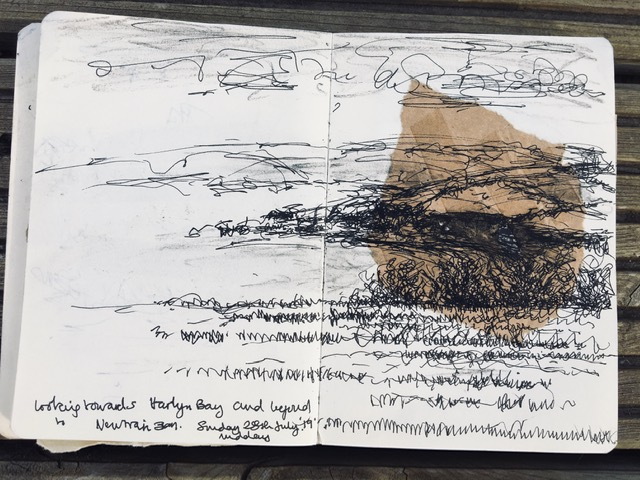 Looking towards Harlyn Bay and beyond
to Newtrain Bay. Sunday 28th July '19
midday